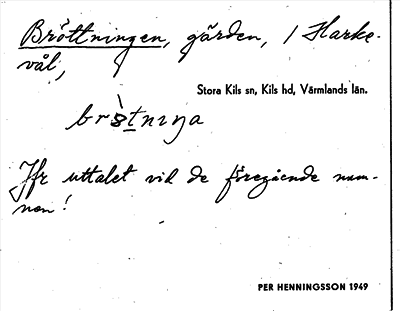 Bröttningen, gården, / Harke-
vål,
Stora Kils sn, Kils hd, Värmlands län.
Jfr uttalet vid de föregående nam-
nen!
PER HENNINGSSON 1949